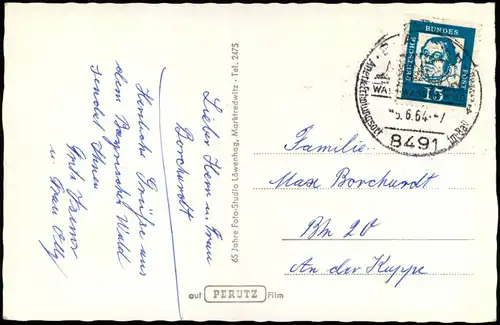 Lieber Herr u. Frau
Borchardt
Herzliche Grüße aus
dem Bayrischen Wald
sendet Ihnen
u. Frau
65 Jahre Foto-Studio Löwenhag, Marktredwitz · Tel. 2475
auf PERUTZ Film
DEUTSCHE BUNDES POST
15
-5.6.64.-7
8491
Familie
Max Borchardt
Bln 20
An der Kappe